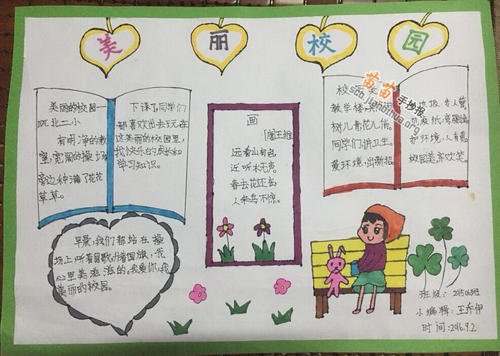 美丽校园
美丽的校园一
玩北二小
有明净的教
室,宽阔的操场
旁边种满了花花
草草。
下课了同学们
都喜欢出去玩在
这美丽的校园里,
我们快乐的成长和
学习知识。
画
[唐]王维
远看山有色
近听水无声
春去花还在
人来鸟不惊。
教学楼
树儿青花儿俏。
同学们讲卫生。
爱环境,出新招
护环境,人有责
校园美万欢笑
苗苗手抄报
scb.jianbihua.org
早晨,我们都站在操
场上听着国歌,升着国旗,我
心里美滋滋的。我爱你,我
美丽的校园。
班级:
小编辑:王乔伊
时间:2016.9.2